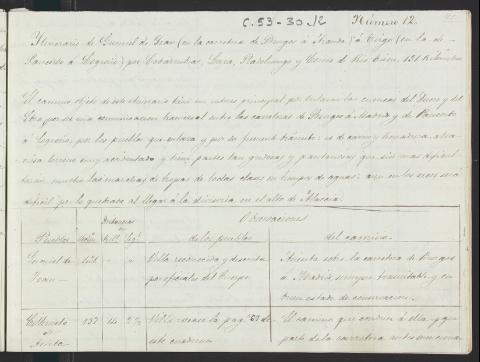 C. 53-30/2
Número 12.
Itinerario de Gumiel de Izan (en la carretera de Burgos á Aranda) á Tirgo (en la de
Pancorbo á Logroño) por Covarrubias, Lara, y Cerezo de Rio Tirón, 131 kilómetros
El camino objeto de este itinerario tiene un interes principal por enlazar las cuencas del Duero y del
Ebro por ser una comunicacion transversal entre las carreteras de Burgos á Madrid y de Pancorbo
á Logroño, por los pueblos que enlaza y por su frecuente tránsito: es de carro y herradura, atra-
viesa terreno muy accidentado y tiene partes tan gredosas y pantanosas que
mucho las marchas de tropas de todas clases en tiempo de aguas; aun en los
dificil por lo quebrado al llegar á la divisoria, en el alto de
Distancias en
Observaciones
Pueblos
Kill. leg.
de los pueblos
del camino.
Gumiel de
Izan
" "
Villa reconocida y descrita
por oficiales del Cuerpo
Asiento sobre la carretera de Burgos
á Madrid, siempre transitable y en
buen estado de conservacion.
137 14 2 ½
Villa: vease la pag. de
este cuaderno
El camino que conduce á ella
parte de la carretera antes mencionada